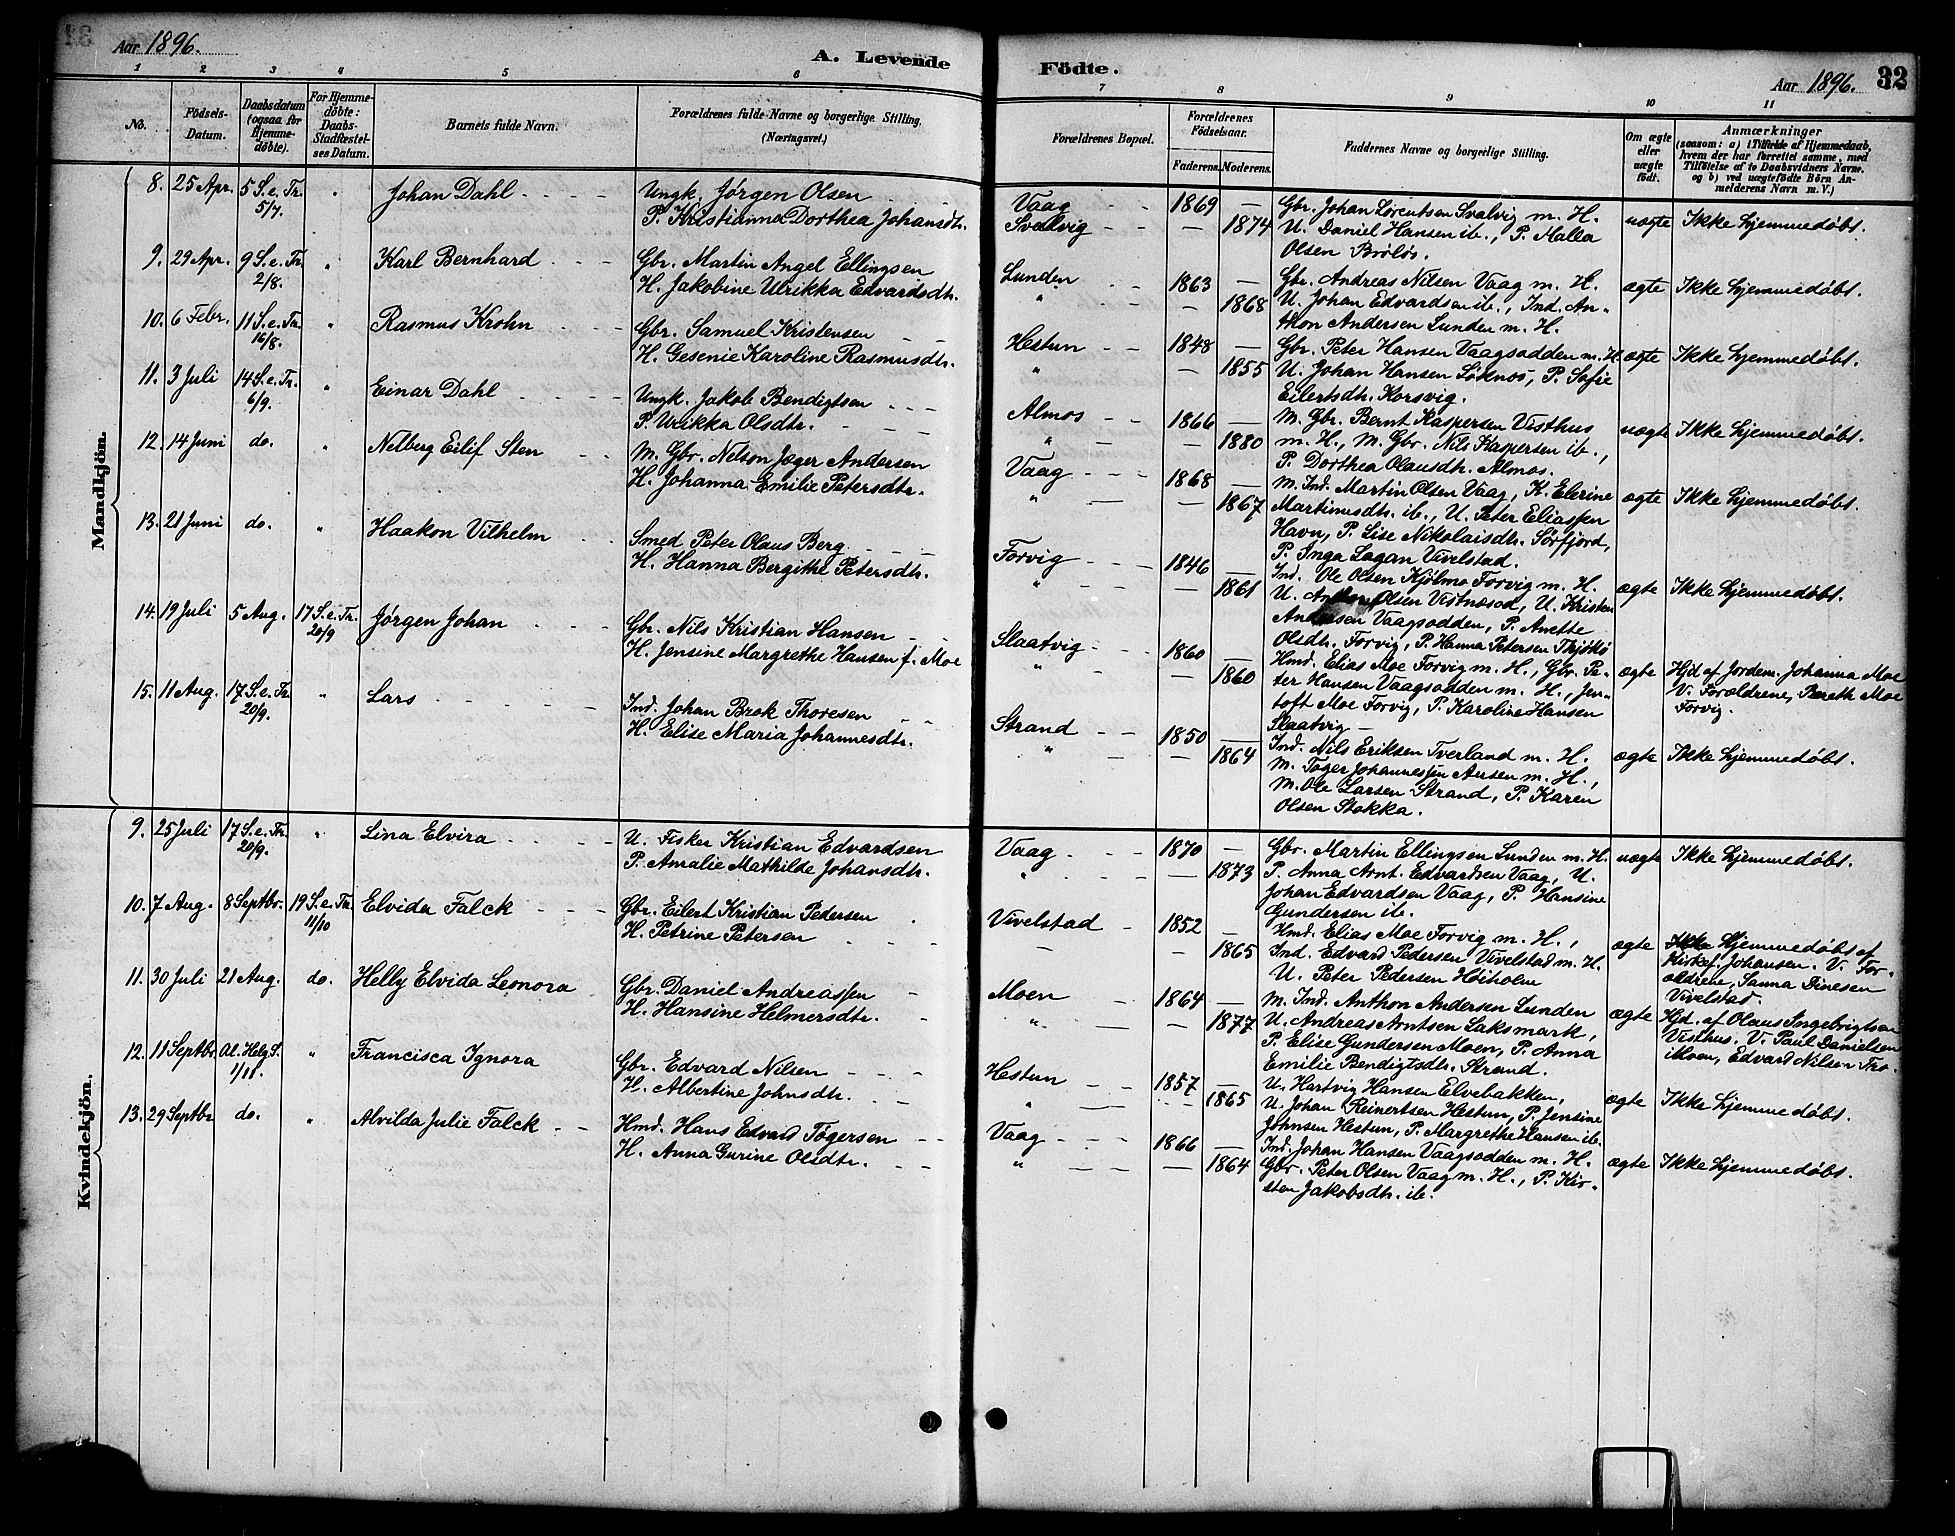 Aar 1896.
A. Levende
1 2 3 4 5 6
No.
Födsels-
Datum.
Daabsdatum
(ogsaa for
Hjemme-
döbte).
For Hjemme-
döbte:
Daabs-
Stadfæstel-
ses Datum.
Barnets fulde Navn.
Forældrenes fulde Navne og borgerlige Stilling.
(Næringsvei.)
Mandkjön.
8. 25 Apr. 5 S. e. Tr. " Johan Dahl Ungk. Jørgen Olsen
5/7. P. Kristianna Dorthea Johansdtr.
9. 29 Apr. 9 S. e. Tr. " Karl Bernhard Gbr. Martin Angel Ellingsen
2/8. H. Jakobine Ulrikka Edvardsdtr.
10. 6 Febr. 11 S. e. Tr. " Rasmus Krohn Gbr. Samuel Kristensen
16/8. H. Gesenie Karoline Rasmusdtr.
11. 3 Juli 14 S. e. Tr. " Einar Dahl Ungk. Jakob Bendigtsen
6/9. P. Ulrikka Olsdtr.
12. 14 Juni do. " Nelberg Eilif Sten M. Gbr. Nelson Jæger Andersen
H. Johanna Emilie Petersdtr.
13. 21 Juni do. " Haakon Vilhelm Smed Peter Olaus Berg
H. Hanna Bergithe Petersdtr.
14. 19 Juli 5 Aug. 17 S. e. Tr. Jørgen Johan Gbr. Nils Kristian Hansen
20/9 H. Jensine Margrethe Hansen f. Moe
15. 11 Aug. 17 S. e. Tr. " Lars Ind. Johan Brok Thoresen
20/9. H. Elise Maria Johannesdtr.
Kvindekjön.
9. 25 Juli 17 S. e. Tr. " Lina Elvira U. Fisker Kristian Edvardsen
20/9. P. Amalie Mathilde Johansdtr.
10. 7 Aug. 8 Septbr. 19 S. e. Tr. Elvida Falck Gbr. Eilert Kristian Pedersen
11/10 H. Petrine Petersen
11. 30 Juli 21 Aug. do. Helly Elvida Leonora Gbr. Daniel Andreassen
H. Hansine Helmersdtr.
12. 11 Septbr. Al. Helg. S. " Francisca Ignora Gbr. Edvard Nilsen
1/11. H. Albertine Johnsdtr.
13. 29 Septbr do. " Alvilda Julie Falck Hmd. Hans Edvard Tøgersen
H. Anna Gurine Olsdtr.
Födte.
Aar 1896. 32
7 8 9 10 11
Forældrenes Bopæl.
Forældrenes
Födselsaar.
Faderens. Moderens.
Faddernes Navne og borgerlige Stilling.
Om ægte
eller
uægte
födt.
Anmærkninger
(saasom: a) i Tilfælde af Hjemmedaab,
hvem der har forrettet samme, med
Tilföielse af to Daabsvidners Navne,
og b) ved uægtefödte Börn An-
melderens Navn m. V.)
Vaag 1869 — Gbr. Johan Lorentsen Svalvig m. H. uægte Ikke hjemmedøbt.
Svalvig — 1874 U. Daniel Hansen ib., P. Malla
Olsen Brøløs.
Lunden 1863 — Gbr. Andreas Nilsen Vaag m. H. ægte Ikke hjemmedøbt.
" — 1868 U. Johan Edvardsen ib., Ind. An-
thon Andersen Lunden m. H.
Hestun 1848 — Gbr. Peter Hansen Vaagsodden m. H. ægte Ikke hjemmedøbt.
" — 1855 U. Johan Hansen Søknos, P. Sofie
Eilertsdtr. Korsvig.
Almos 1866 — M. Gbr. Bernt Kaspersen Visthus uægte Ikke hjemmedøbt.
" — 1880 m. H., M. Gbr. Nils Kaspersen ib.,
P. Dorthea Olausdtr. Almos.
Vaag 1868 — M. Ind. Martin Olsen Vaag, K. Elerine ægte Ikke hjemmedøbt.
" — 1867 Martinusdtr. ib., U. Peter Eliassen
Havn, P. Lise Nikolaisdtr. Sørfjord,
P. Inga Lagan Vivelstad.
Forvig 1846 — Ind. Ole Olsen Kjølmo Forvig m. H. ægte Ikke hjemmedøbt.
" — 1861 U. Anton Olsen Vistnæsod, U. Kristen
Andersen Vaagsodden, P. Anette
Olsdtr. Forvig, P. Hanna Petersen Thjøttø
Slaatvig 1860 — Hmd. Elias Moe Forvig m. H., Gbr. Pe- ægte Hjd af Jordem. Johanna Moe
" — 1860 ter Hansen Vaagsodden m. H., Jen- V. Forældrene, Bereth Moe
toft Moe Forvig, P. Karoline Hansen Forvig.
Slaatvig —
Strand 1850 — Ind. Nils Eriksen Tverland m. H. ægte Ikke hjemmedøbt.
" — 1864 M. Tøger Johannessen Aursen m. H.,
M. Ole Larsen Strand, P. Karen
Olsen Stokka.
Vaag 1870 — Gbr. Martin Ellingsen Lunden m. H. uægte Ikke hjemmedøbt.
" — 1873 P. Anna Arnt. Edvardsen Vaag, U.
Johan Edvardsen Vaag, P. Hansine
Gundersen ib.
Vivelstad 1852 — Hmd. Elias Moe Forvig m. H., ægte Hjemmedøbt af
— — 1865 Ind. Edvard Pedersen Vivelstad m. H. Kirkef. Johansen. V. For-
U. Peter Pedersen Høiholm ældrene, Sanna Dinesen
Vivelstad.
Moen 1864 — M. Ind. Anthon Andersen Lunden ægte Hjd. af Olaus Ingebrigtsen
" — 1877 U. Andreas Arntsen Laksmark, Visthus. V. Paul Danielsen
P. Elise Gundersen Moen, P. Anna Moen, Edvard Nilsen Tro.
Emilie Bendigtsdtr. Strand.
Hestun 1857 — U. Hartvig Hansen Elvebakken, ægte Ikke hjemmedøbt.
" — 1865 U. Johan Reinertsen Hestun, P. Jensine
Johnsen Hestun, P. Margrethe Hansen ib.
Vaag 1866 — Ind. Johan Hansen Vaagsodden m. H. ægte Ikke hjemmedøbt.
" — 1864 Gbr. Peter Olsen Vaag m. H., P. Kir-
sten Jakobsdtr. ib.